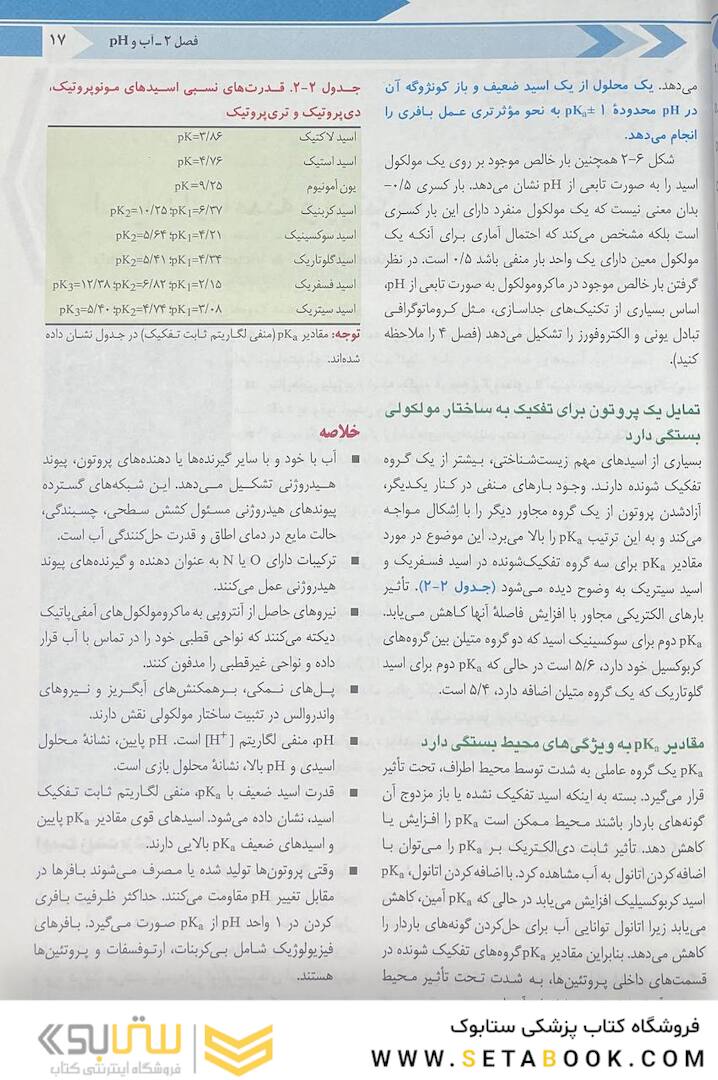 فصل ۲ ـ آب و pH
۱۷
می‌دهد. یک محلول از یک اسید ضعیف و باز کونژوگه آن
در pH محدودهٔ ۱ ±pKa به نحو مؤثرتری عمل بافری را
انجام می‌دهد.
شکل ۶-۲ همچنین بار خالص موجود بر روی یک مولکول
اسید را به صورت تابعی از pH نشان می‌دهد. بار کسری ۰/۵−
بدان معنی نیست که یک مولکول منفرد دارای این بار کسری
است بلکه مشخص می‌کند که احتمال آماری برای آنکه یک
مولکول معین دارای یک واحد بار منفی باشد ۰/۵ است. در نظر
گرفتن بار خالص موجود در ماکرومولکول به صورت تابعی از pH،
اساس بسیاری از تکنیک‌های جداسازی، مثل کروماتوگرافی
تبادل یونی و الکتروفورز را تشکیل می‌دهد (فصل ۴ را ملاحظه
کنید).
تمایل یک پروتون برای تفکیک به ساختار مولکولی
بستگی دارد
بسیاری از اسیدهای مهم زیست‌شناختی، بیشتر از یک گروه
تفکیک شونده دارند. وجود بارهای منفی در کنار یکدیگر،
آزادشدن پروتون از یک گروه مجاور دیگر را با اِشکال مواجه
می‌کند و به این ترتیب pKa را بالا می‌برد. این موضوع در مورد
مقادیر pKa برای سه گروه تفکیک‌شونده در اسید فسفریک و
اسید سیتریک به وضوح دیده می‌شود (جدول ۲-۲). تأثیر
بارهای الکتریکی مجاور با افزایش فاصلهٔ آنها کاهش می‌یابد.
pKa دوم برای سوکسینیک اسید که دو گروه متیلن بین گروه‌های
کربوکسیل خود دارد، ۵/۶ است در حالی که pKa دوم برای اسید
گلوتاریک که یک گروه متیلن اضافه دارد، ۵/۴ است.
مقادیر pKa به ویژگی‌های محیط بستگی دارد
pKa یک گروه عاملی به شدت توسط محیط اطراف، تحت تأثیر
قرار می‌گیرد. بسته به اینکه اسید تفکیک نشده یا باز مزدوج آن
گونه‌های باردار باشند محیط ممکن است pKa را افزایش یا
کاهش دهد. تأثیر ثابت دی‌الکتریک بر pKa را می‌توان با
اضافه کردن اتانول به آب مشاهده کرد. با اضافه کردن اتانول، pKa
اسید کربوکسیلیک افزایش می‌یابد در حالی که pKa آمین، کاهش
می‌یابد زیرا اتانول توانایی آب برای حل‌کردن گونه‌های باردار را
کاهش می‌دهد. بنابراین مقادیر pKa گروه‌های تفکیک شونده در
قسمت‌های داخلی پروتئین‌ها، به شدت تحت تأثیر محیط
جدول ۲-۲. قدرت‌های نسبی اسیدهای مونوپروتیک،
دی‌پروتیک و تری‌پروتیک
اسید لاکتیک pK=۳/۸۶
اسید استیک pK=۴/۷۶
یون آمونیوم pK=۹/۲۵
اسید کربنیک pK1=۶/۳۷؛ pK2=۱۰/۲۵
اسید سوکسینیک pK1=۴/۲۱؛ pK2=۵/۶۴
اسید گلوتاریک pK1=۴/۳۴؛ pK2=۵/۴۱
اسید فسفریک pK1=۲/۱۵؛ pK2=۶/۸۲؛ pK3=۱۲/۳۸
اسید سیتریک pK1=۳/۰۸؛ pK2=۴/۷۴؛ pK3=۵/۴۰
توجه: مقادیر pKa (منفی لگاریتم ثابت تفکیک) در جدول نشان داده
شده‌اند.
خلاصه
■ آب با خود و با سایر گیرنده‌ها یا دهنده‌های پروتون، پیوند
هیدروژنی تشکیل می‌دهد. این شبکه‌های گسترده
پیوندهای هیدروژنی مسئول کشش سطحی، چسبندگی،
حالت مایع در دمای اطاق و قدرت حل‌کنندگی آب است.
■ ترکیبات دارای O یا N به عنوان دهنده و گیرنده‌های پیوند
هیدروژنی عمل می‌کنند.
■ نیروهای حاصل از آنتروپی به ماکرومولکول‌های آمفی‌پاتیک
دیکته می‌کنند که نواحی قطبی خود را در تماس با آب قرار
داده و نواحی غیرقطبی را مدفون کنند.
■ پل‌های نمکی، برهمکنش‌های آبگریز و نیروهای
واندروالس در تثبیت ساختار مولکولی نقش دارند.
■ pH، منفی لگاریتم [H+] است. pH پایین، نشانهٔ محلول
اسیدی و pH بالا، نشانهٔ محلول بازی است.
■ قدرت اسید ضعیف با pKa، منفی لگاریتم ثابت تفکیک
اسید، نشان داده می‌شود. اسیدهای قوی مقادیر pKa پایین
و اسیدهای ضعیف pKa بالایی دارند.
■ وقتی پروتون‌ها تولید شده یا مصرف می‌شوند بافرها در
مقابل تغییر pH مقاومت می‌کنند. حداکثر ظرفیت بافری
کردن در ۱ واحد pH از pKa صورت می‌گیرد. بافرهای
فیزیولوژیک شامل بی‌کربنات، ارتوفسفات و پروتئین‌ها
هستند.
فروشگاه کتاب پزشکی ستابوک
WWW.SETABOOK.COM
ستابوک
فروشگاه اینترنتی کتاب